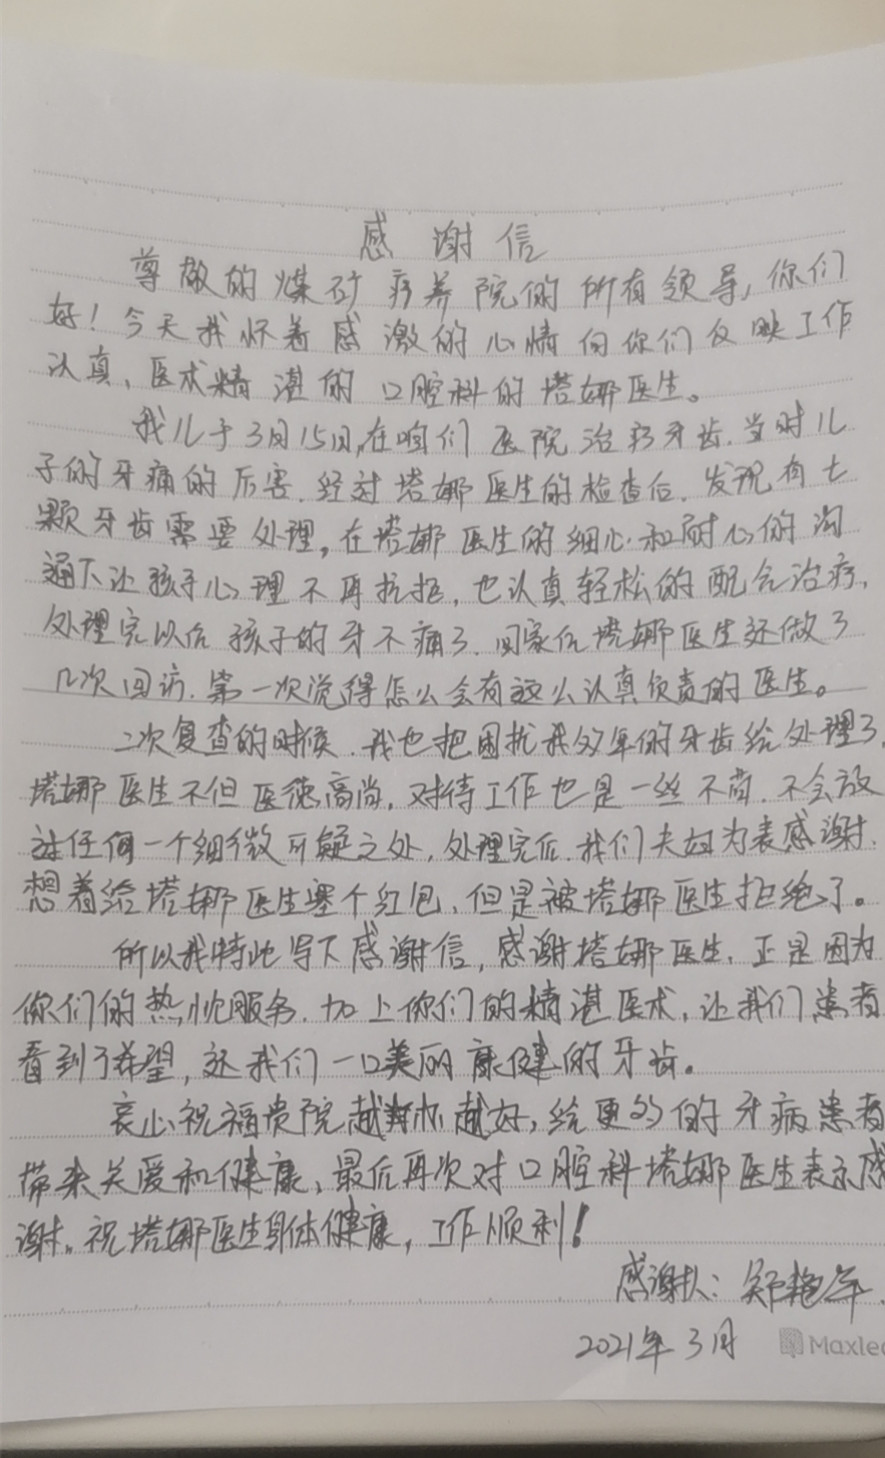 感谢信
尊敬的煤矿疗养院的所有领导,你们
好!今天我怀着感激的心情向你们反映工作
认真、医术精湛的口腔科的塔娜医生。
我儿于3月15日,在咱们医院治疗牙齿.当时儿
子的牙痛的厉害.经过塔娜医生的检查后.发现有七
颗牙齿需要处理。在塔娜医生的细心和耐心的沟
通下让孩子心理不再抗拒,也认真轻松的配合治疗,
处理完以后孩子的牙不痛了.回家后塔娜医生还做了
几次回访.第一次觉得怎么会有这么认真负责的医生。
二次复查的时候.我也把困扰我多年的牙齿给处理了.
塔娜医生不但医德高尚,对待工作也是一丝不苟.不会放
过任何一个细微可疑之处,处理完后.我们夫妇为表感谢.
想着给塔娜医生塞个红包,但是被塔娜医生拒绝了。
所以我特此写下感谢信,感谢塔娜医生.正是因为
你们的热忱服务.加上你们的精湛医术,让我们患者
看到了希望,还我们一口美丽康健的牙齿。
衷心祝福贵院越办越好,给更多的牙病患者
带来关爱和健康,最后再次对口腔科塔娜医生表示感
谢。祝塔娜医生身体健康,工作顺利!
感谢人:艳军.
2021年3月
Maxlea